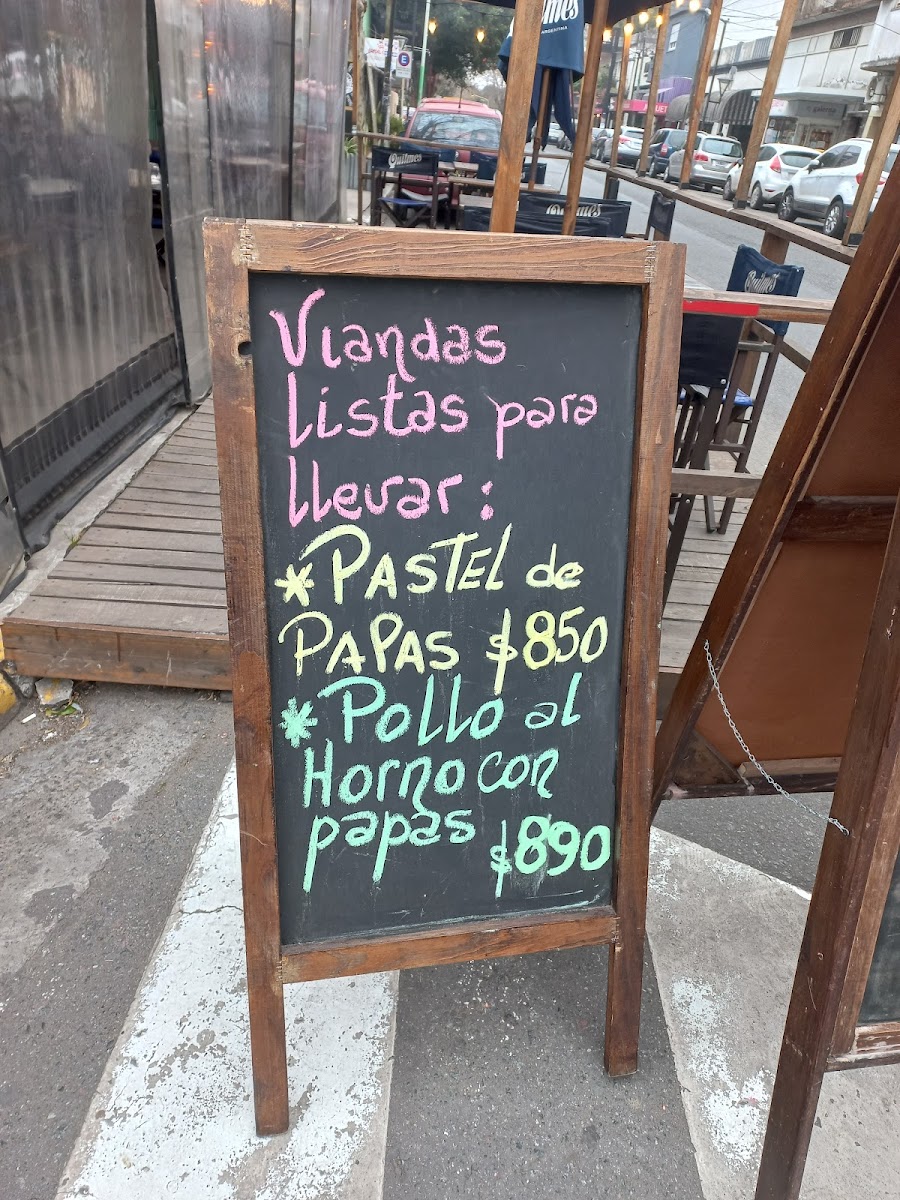 Viandas
listas para
llevar:
* PASTEL de
PAPAS $850
* Pollo al
Horno con
papas $890
Quilmes
Quilmes
Quilmes
E